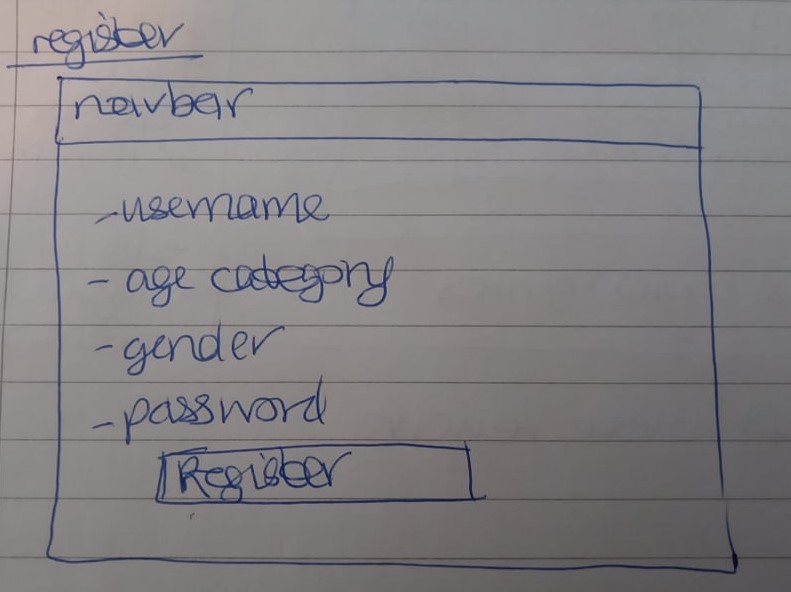 register
navbar
- username
- age category
- gender
- password
Register